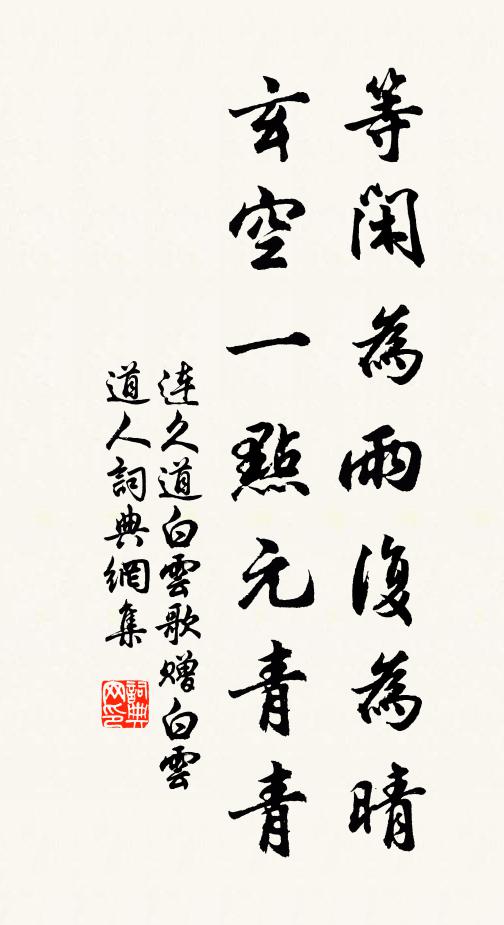 等閑為雨復為晴
玄空一點元青青
連久道白雲歌贈白雲
道人詞典網集
詞典
网印